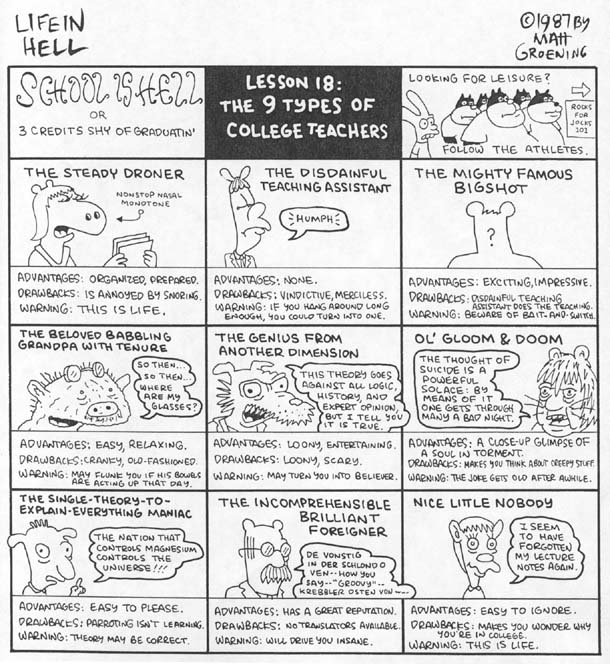 LIFE IN
HELL
©1987 BY
MATT
GROENING
SCHOOL IS HELL
OR
3 CREDITS SHY OF GRADUATIN'
LESSON 18:
THE 9 TYPES OF
COLLEGE TEACHERS
LOOKING FOR LEISURE?
ROCKS
FOR
JOCKS
101
FOLLOW THE ATHLETES.
THE STEADY DRONER
NONSTOP NASAL
MONOTONE
ADVANTAGES: ORGANIZED, PREPARED.
DRAWBACKS: IS ANNOYED BY SNORING.
WARNING: THIS IS LIFE.
THE DISDAINFUL
TEACHING ASSISTANT
HUMPH
ADVANTAGES: NONE.
DRAWBACKS: VINDICTIVE, MERCILESS.
WARNING: IF YOU HANG AROUND LONG
ENOUGH, YOU COULD TURN INTO ONE.
THE MIGHTY FAMOUS
BIGSHOT
?
ADVANTAGES: EXCITING, IMPRESSIVE.
DRAWBACKS: DISDAINFUL TEACHING
ASSISTANT DOES THE TEACHING.
WARNING: BEWARE OF BAIT-AND-SWITCH.
THE BELOVED BABBLING
GRANDPA WITH TENURE
SO THEN...
SO THEN...
WHERE
ARE MY
GLASSES?
ADVANTAGES: EASY, RELAXING.
DRAWBACKS: CRANKY, OLD-FASHIONED.
WARNING: MAY FLUNK YOU IF HIS BOWELS
ARE ACTING UP THAT DAY.
THE GENIUS FROM
ANOTHER DIMENSION
THIS THEORY GOES
AGAINST ALL LOGIC,
HISTORY, AND
EXPERT OPINION,
BUT I TELL YOU
IT IS TRUE.
ADVANTAGES: LOONY, ENTERTAINING.
DRAWBACKS: LOONY, SCARY.
WARNING: MAY TURN YOU INTO BELIEVER.
OL' GLOOM & DOOM
THE THOUGHT OF
SUICIDE IS A
POWERFUL
SOLACE: BY
MEANS OF IT
ONE GETS THROUGH
MANY A BAD NIGHT.
ADVANTAGES: A CLOSE-UP GLIMPSE OF
A SOUL IN TORMENT.
DRAWBACKS: MAKES YOU THINK ABOUT CREEPY STUFF.
WARNING: THE JOKE GETS OLD AFTER AWHILE.
THE SINGLE-THEORY-TO-
EXPLAIN-EVERYTHING MANIAC
THE NATION THAT
CONTROLS MAGNESIUM
CONTROLS THE
UNIVERSE!!!
ADVANTAGES: EASY TO PLEASE.
DRAWBACKS: PARROTING ISN'T LEARNING.
WARNING: THEORY MAY BE CORRECT.
THE INCOMPREHENSIBLE
BRILLIANT
FOREIGNER
DE VONSTIG
IN DER SCHLONDO
VEN--HOW YOU
SAY--"GROOVY"--
KREBBLER OSTEN VON
ADVANTAGES: HAS A GREAT REPUTATION.
DRAWBACKS: NO TRANSLATORS AVAILABLE.
WARNING: WILL DRIVE YOU INSANE.
NICE LITTLE NOBODY
I SEEM
TO HAVE
FORGOTTEN
MY LECTURE
NOTES AGAIN.
ADVANTAGES: EASY TO IGNORE.
DRAWBACKS: MAKES YOU WONDER WHY
YOU'RE IN COLLEGE.
WARNING: THIS IS LIFE.